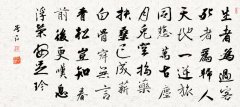 生者為過客
死者為歸人
天地一逆旅
同悲萬古塵
月兔空搗藥
扶桑已成薪
白骨寂無言
青松豈知春
前後更嘆息
浮榮何足珍